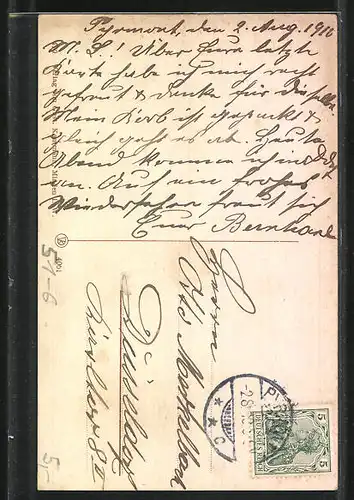 Pyrmont, den 2. Aug. 1910
M. L.! Über Eure letzte
Karte habe ich mich recht
gefreut & danke für dieselbe.
Mein Korb ist gepackt &
gleich geht es ab. Heute
Abend kommen
an. Auf ein frohes
Wiedersehen freut sich
Euer Bernhard
Herrn
Otto
Düsseldorf
8 II
5
5
DEUTSCHES REICH
C
51-6
5,-